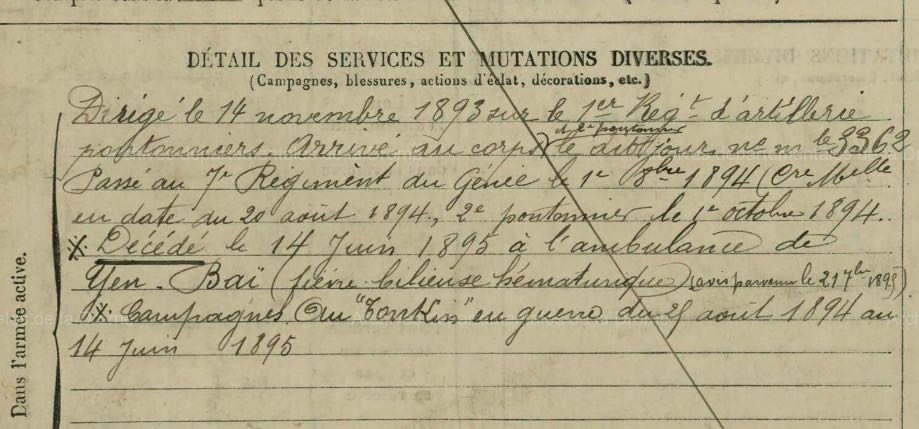 DÉTAIL DES SERVICES ET MUTATIONS DIVERSES.
(Campagnes, blessures, actions d'éclat, décorations, etc.)
Dirigé le 14 novembre 1893 sur le 1er Régt d'artillerie
et 2e pontonnier
pontonniers. Arrivé au corps le dit jour, ne m le 3362
Passé au 7e Régiment du Génie le 1er 8bre 1894 (Cre Melle
en date du 20 août 1894, 2e pontonnier le 1er octobre 1894.
Décédé le 14 Juin 1895 à l'ambulance de
Yen-Baï (fièvre bilieuse hématurique) (avis parvenu le 21 7bre 1895)
Campagnes. Au "Tonkin" en guerre du août 1894 au
14 Juin 1895
Dans l'armée active.